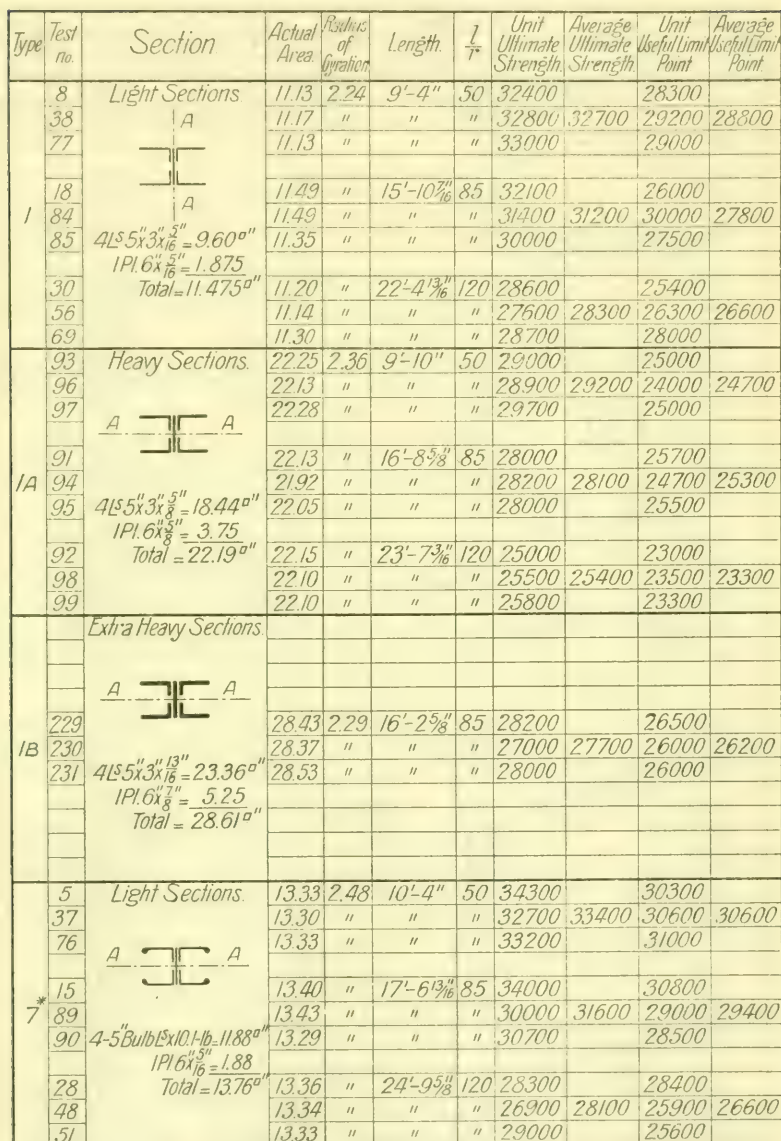 Type Test no. Section Actual Area. Radius of Gyration Length. l/r Unit Ultimate Strength. Average Ultimate Strength. Unit Useful Limit Point Average Useful Limit Point
8 Light Sections 11.13 2.24 9'-4" 50 32400 28300
38 A 11.17 " " " 32800 32700 29200 28800
77 11.13 " " " 33000 29000
18 11.49 " 15'-10 7/16" 85 32100 26000
1 84 A 11.49 " " " 31400 31200 30000 27800
85 4Ls 5"x3"x5/16" = 9.60□" 11.35 " " " 30000 27500
1Pl. 6"x5/16" = 1.875
30 Total = 11.475□" 11.20 " 22'-4 13/16" 120 28600 25400
56 11.14 " " " 27600 28300 26300 26600
69 11.30 " " " 28700 28000
93 Heavy Sections. 22.25 2.36 9'-10" 50 29000 25000
96 22.13 " " " 28900 29200 24000 24700
97 A A 22.28 " " " 29700 25000
91 22.13 " 16'-8 5/8" 85 28000 25700
1A 94 21.92 " " " 28200 28100 24700 25300
95 4Ls 5"x3"x5/8" = 18.44□" 22.05 " " " 28000 25500
1Pl. 6"x5/8" = 3.75
92 Total = 22.19□" 22.15 " 23'-7 3/16" 120 25000 23000
98 22.10 " " " 25500 25400 23500 23300
99 22.10 " " " 25800 23300
Extra Heavy Sections.
A A
229 28.43 2.29 16'-2 5/8" 85 28200 26500
1B 230 28.37 " " " 27000 27700 26000 26200
231 4Ls 5"x3"x13/16" = 23.36□" 28.53 " " " 28000 26000
1Pl. 6"x7/8" = 5.25
Total = 28.61□"
5 Light Sections. 13.33 2.48 10'-4" 50 34300 30300
37 13.30 " " " 32700 33400 30600 30600
76 A A 13.33 " " " 33200 31000
15 13.40 " 17'-6 13/16" 85 34000 30800
7* 89 13.43 " " " 30000 31600 29000 29400
90 4-5" Bulb Ls x10.1-lb. = 11.88□" 13.29 " " " 30700 28500
1Pl 6"x5/16" = 1.88
28 Total = 13.76□" 13.36 " 24'-9 5/8" 120 28300 28400
48 13.34 " " " 26900 28100 25900 26600
51 13.33 " " " 29000 25600